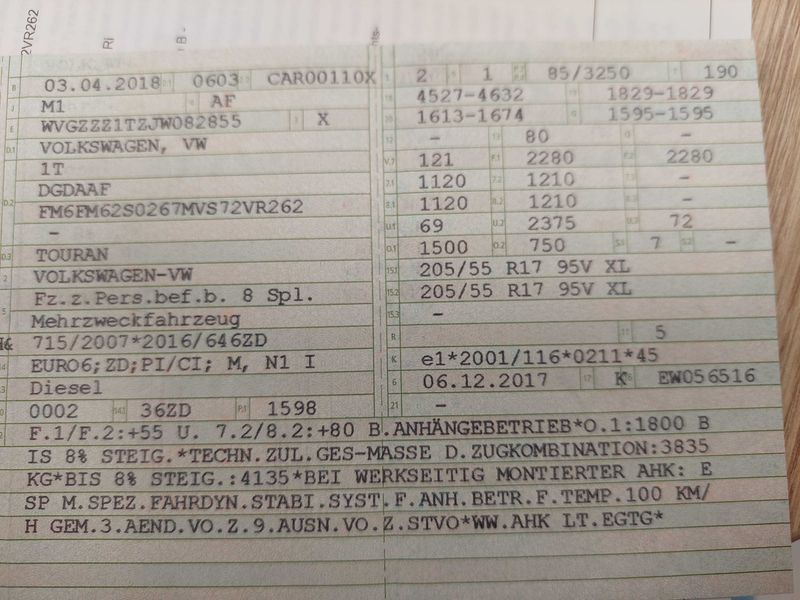 2VR262
Ri
B -
B 03.04.2018 2.1 0603 2.2 CAR00110X
J M1 4 AF
E WVGZZZ1TZJW082855 3 X
D.1 VOLKSWAGEN, VW
1T
D.2 DGDAAF
FM6FM62S0267MVS72VR262
-
D.3 TOURAN
2 VOLKSWAGEN-VW
5 Fz.z.Pers.bef.b. 8 Spl.
Mehrzweckfahrzeug
715/2007*2016/646ZD
14 EURO6;ZD;PI/CI; M, N1 I
Diesel
0002 14.1 36ZD P.1 1598
L 2 9 1 P.2 P.4 85/3250 T 190
18 4527-4632 19 1829-1829
20 1613-1674 G 1595-1595
12 - 13 80 Q -
V.7 121 F.1 2280 F.2 2280
7.1 1120 7.2 1210 7.3 -
8.1 1120 8.2 1210 8.3 -
U.1 69 U.2 2375 U.3 72
O.1 1500 O.2 750 S.1 7 S.2 -
15.1 205/55 R17 95V XL
15.2 205/55 R17 95V XL
15.3 -
R 11 5
K e1*2001/116*0211*45
6 06.12.2017 17 K 16 EW056516
21 -
F.1/F.2:+55 U. 7.2/8.2:+80 B.ANHÄNGEBETRIEB*O.1:1800 B
IS 8% STEIG.*TECHN.ZUL.GES-MASSE D.ZUGKOMBINATION:3835
KG*BIS 8% STEIG.:4135*BEI WERKSEITIG MONTIERTER AHK: E
SP M.SPEZ.FAHRDYN.STABI.SYST.F.ANH.BETR.F.TEMP.100 KM/
H GEM.3.AEND.VO.Z.9.AUSN.VO.Z.STVO*WW.AHK LT.EGTG*